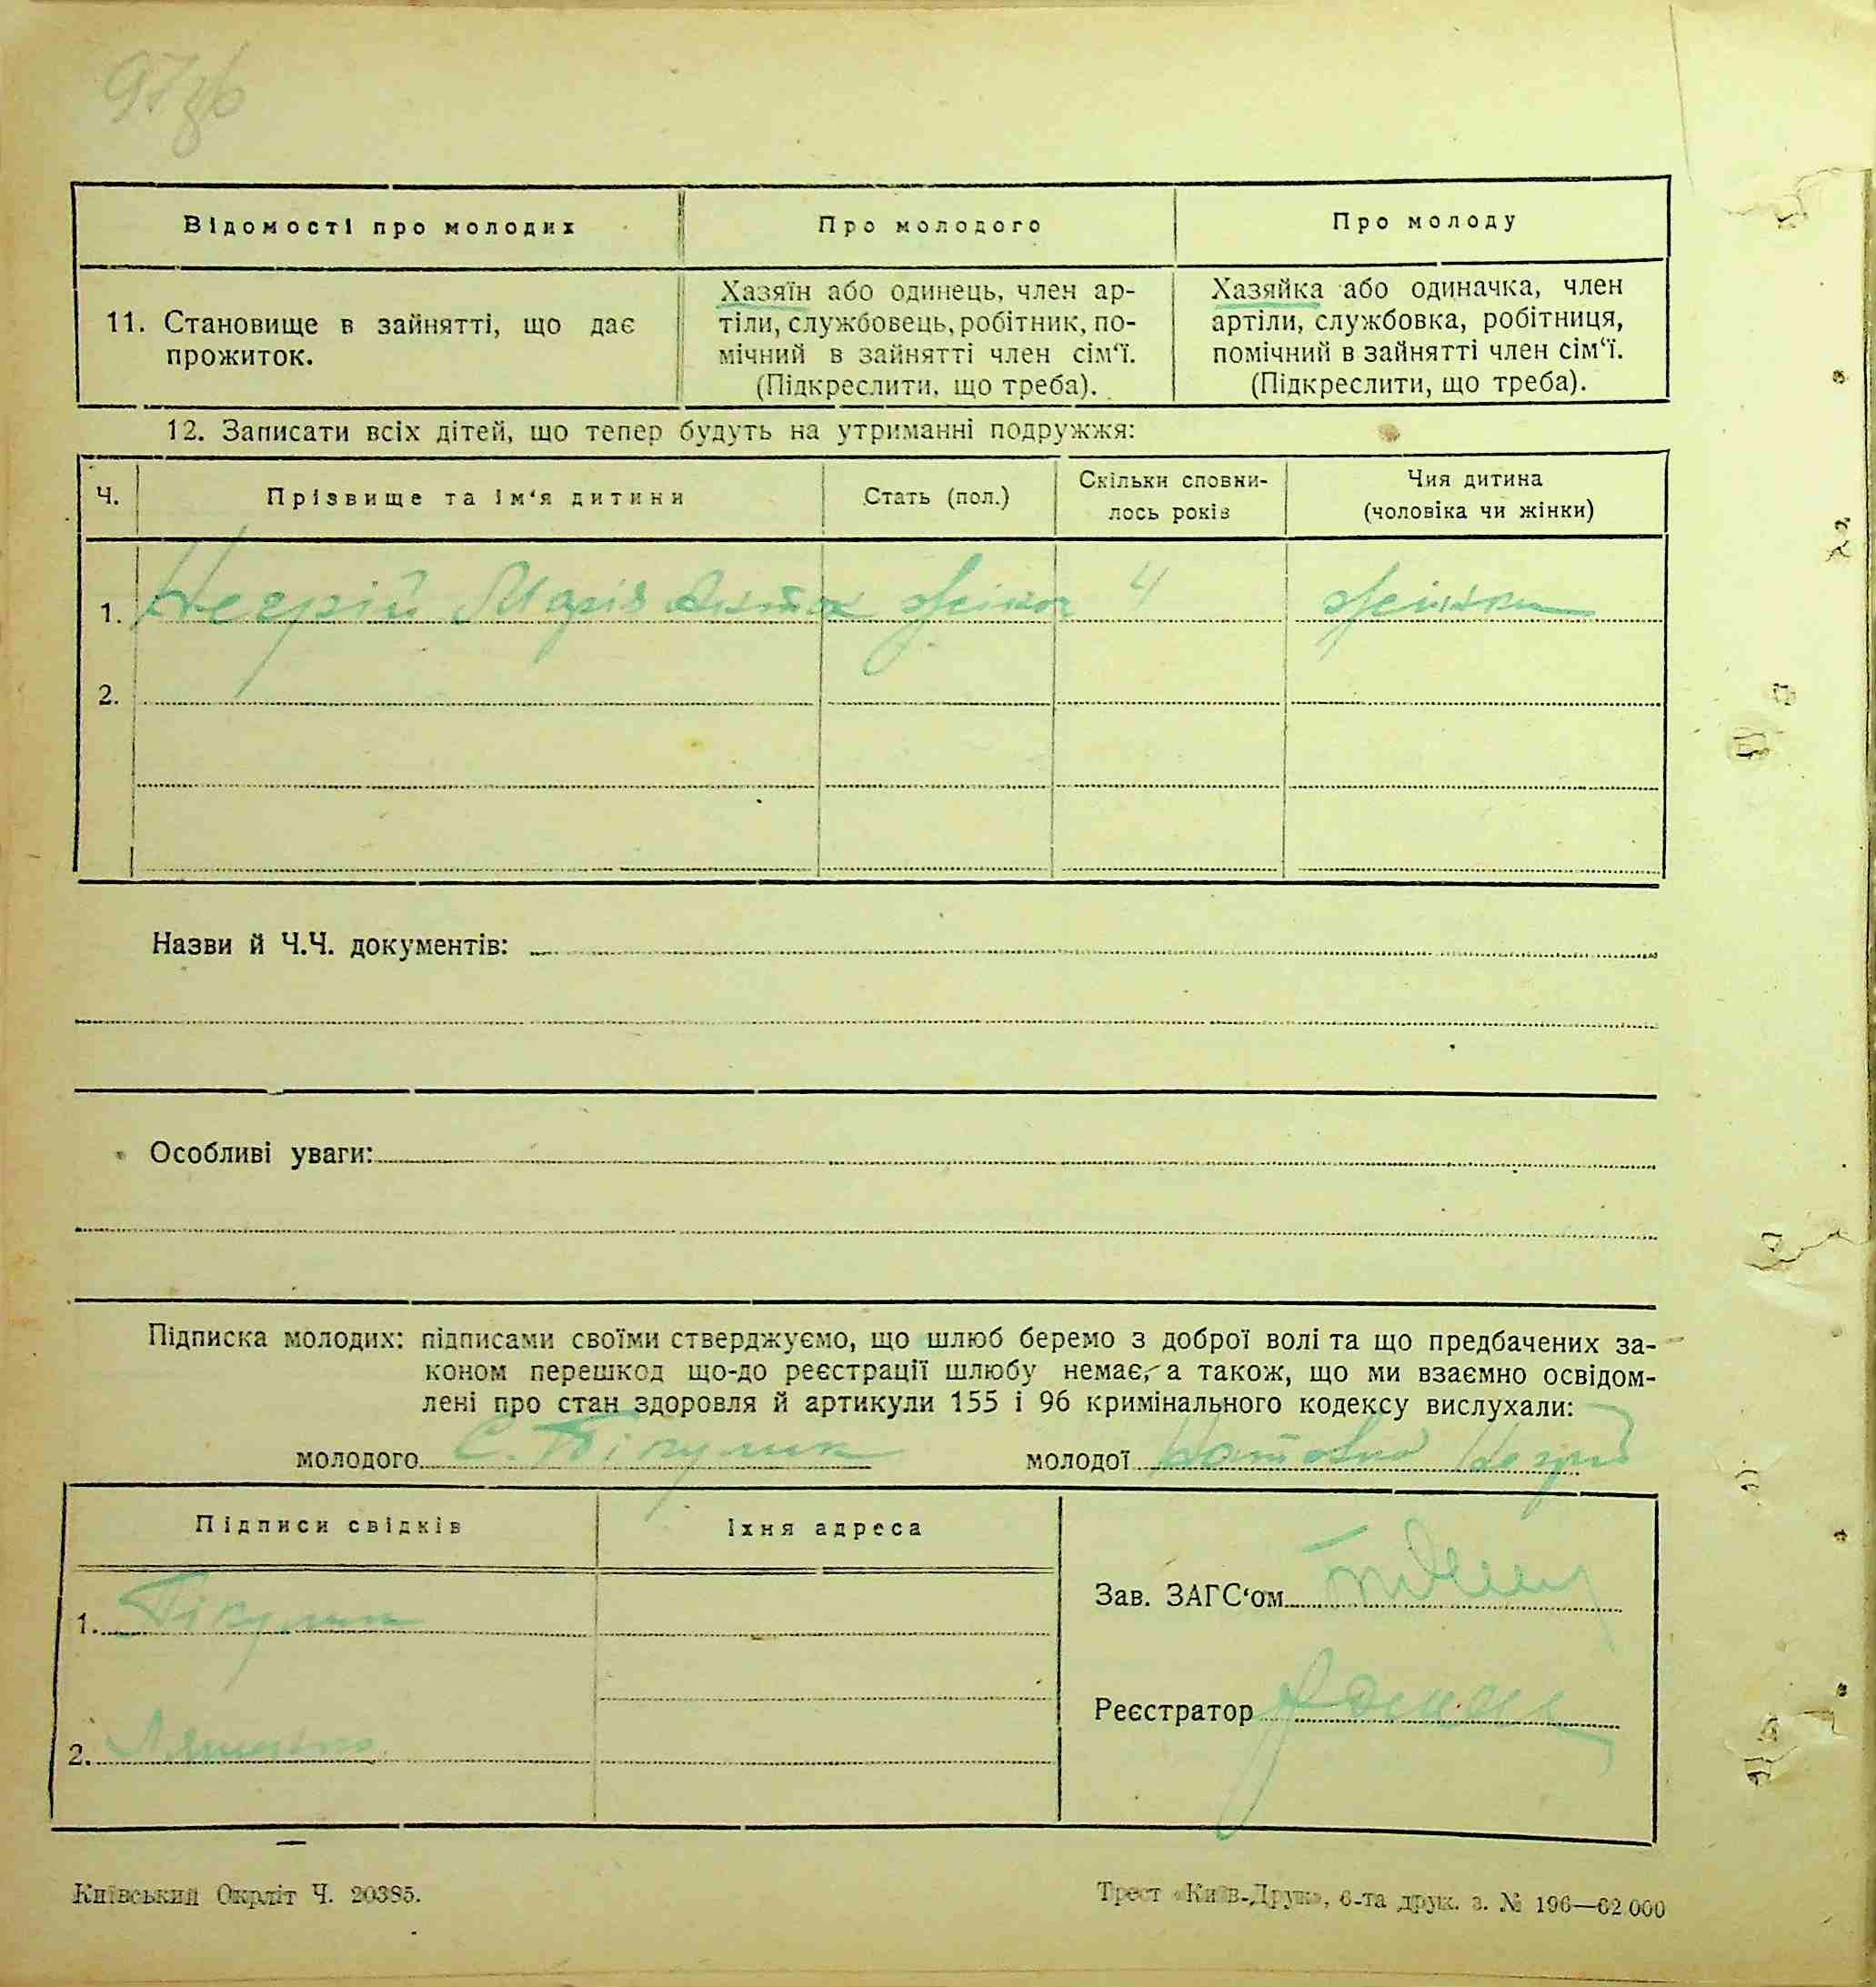 97зв
Відомості про молодих Про молодого Про молоду
11. Становище в зайнятті, що дає прожиток.
Хазяїн або одинець, член ар-
тіли, службовець, робітник, по-
мічний в зайнятті член сім‘ї.
(Підкреслити, що треба).
Хазяйка або одиначка, член
артіли, службовка, робітниця,
помічний в зайнятті член сім‘ї.
(Підкреслити, що треба).
12. Записати всіх дітей, що тепер будуть на утриманні подружжя:
Ч. Прізвище та ім‘я дитини Стать (пол.) Скільки сповни-
лось років Чия дитина
(чоловіка чи жінки)
1. Негрій Марія жіноч 4 жінки
2.
Назви й Ч.Ч. документів:
Особливі уваги:
Підписка молодих: підписами своїми стверджуємо, що шлюб беремо з доброї волі та що предбачених за-
коном перешкод що-до реєстрації шлюбу немає, а також, що ми взаємно освідом-
лені про стан здоровля й артикули 155 і 96 кримінального кодексу вислухали:
молодого С. Пікулик молодої Негрій
Підписи свідків Їхня адреса
Зав. ЗАГС‘ом
1. Пікулик
Реєстратор
2.
Київський Окрліт Ч. 20385.
Трест «Київ-Друк», 6-та друк. з. № 196—62.000